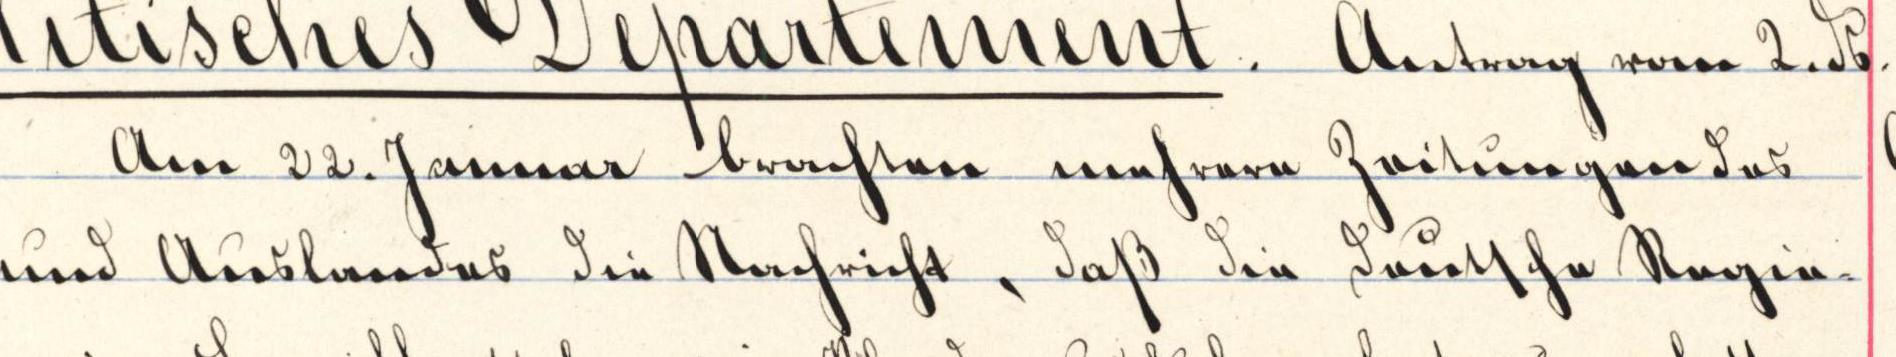 litisches Departement. Antrag vom 2. ds.
Am 22. Januar brachten mehrere Zeitungen des
und Auslandes die Nachricht, daß die deutsche Regie-